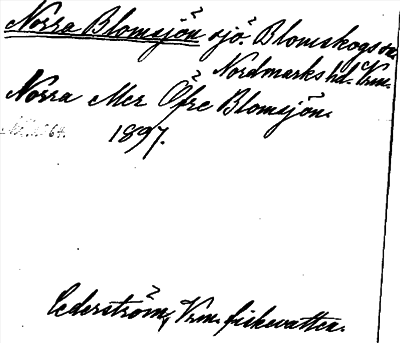 Norra Blomsjön sjö. Blomskogs sn.
Nordmarks hd. Vrm.
Norra eller Öfre Blomsjön.
1897.
Cederström, Vrm. fiskevatten.